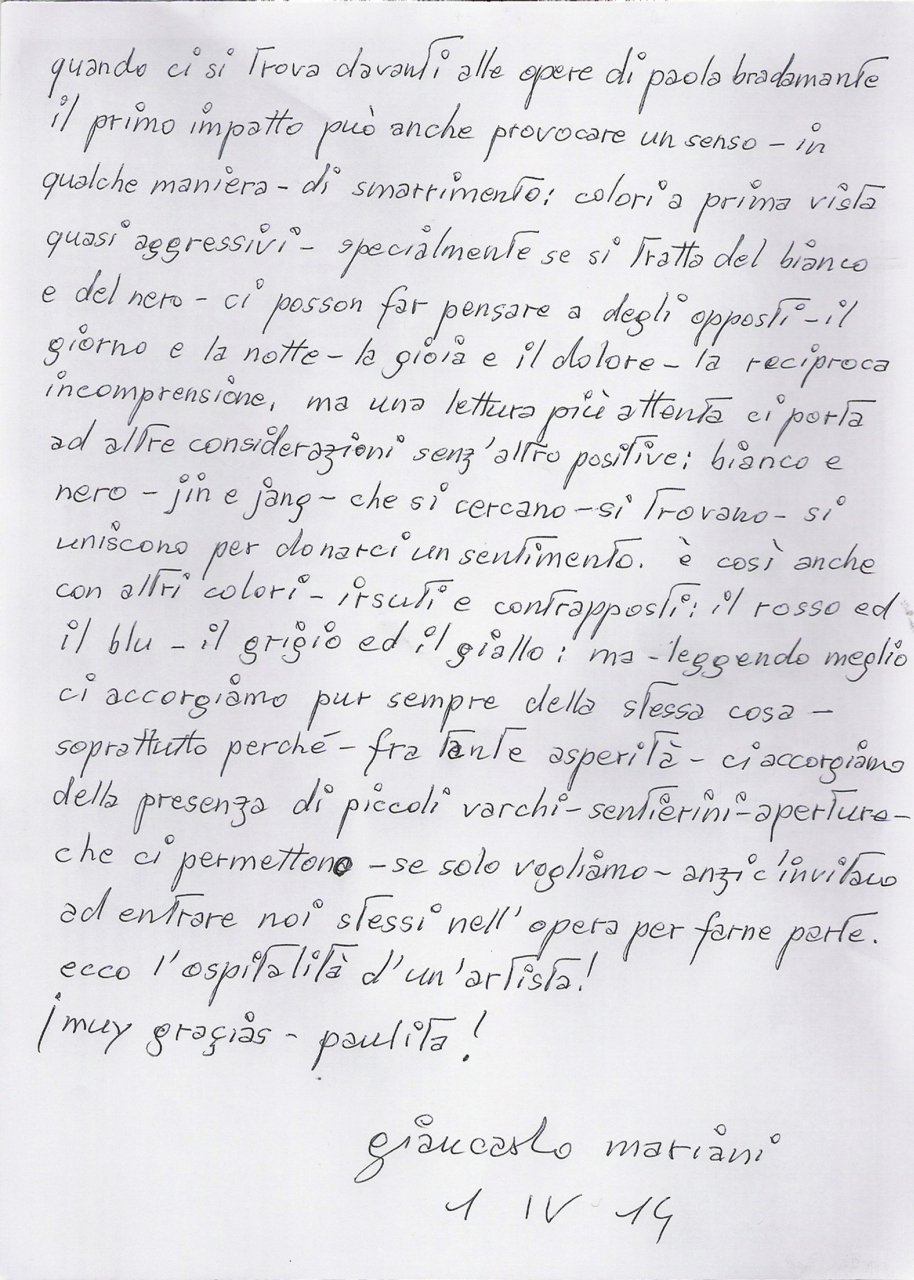 quando ci si trova davanti alle opere di paola bradamante
il primo impatto può anche provocare un senso - in
qualche maniera - di smarrimento: colori a prima vista
quasi aggressivi - specialmente se si tratta del bianco
e del nero - ci posson far pensare a degli opposti - il
giorno e la notte - la gioia e il dolore - la reciproca
incomprensione, ma una lettura più attenta ci porta
ad altre considerazioni senz'altro positive: bianco e
nero - jin e jang - che si cercano - si trovano - si
uniscono per donarci un sentimento. è così anche
con altri colori - irsuti e contrapposti: il rosso ed
il blu - il grigio ed il giallo: ma - leggendo meglio
ci accorgiamo pur sempre della stessa cosa -
soprattutto perché - fra tante asperità - ci accorgiamo
della presenza di piccoli varchi - sentierini - aperture -
che ci permettono - se solo vogliamo - anzi c'invitano
ad entrare noi stessi nell'opera per farne parte.
ecco l'ospitalità d'un'artista!
¡muy graçias - paulita!
giancarlo mariani
1 IV 14